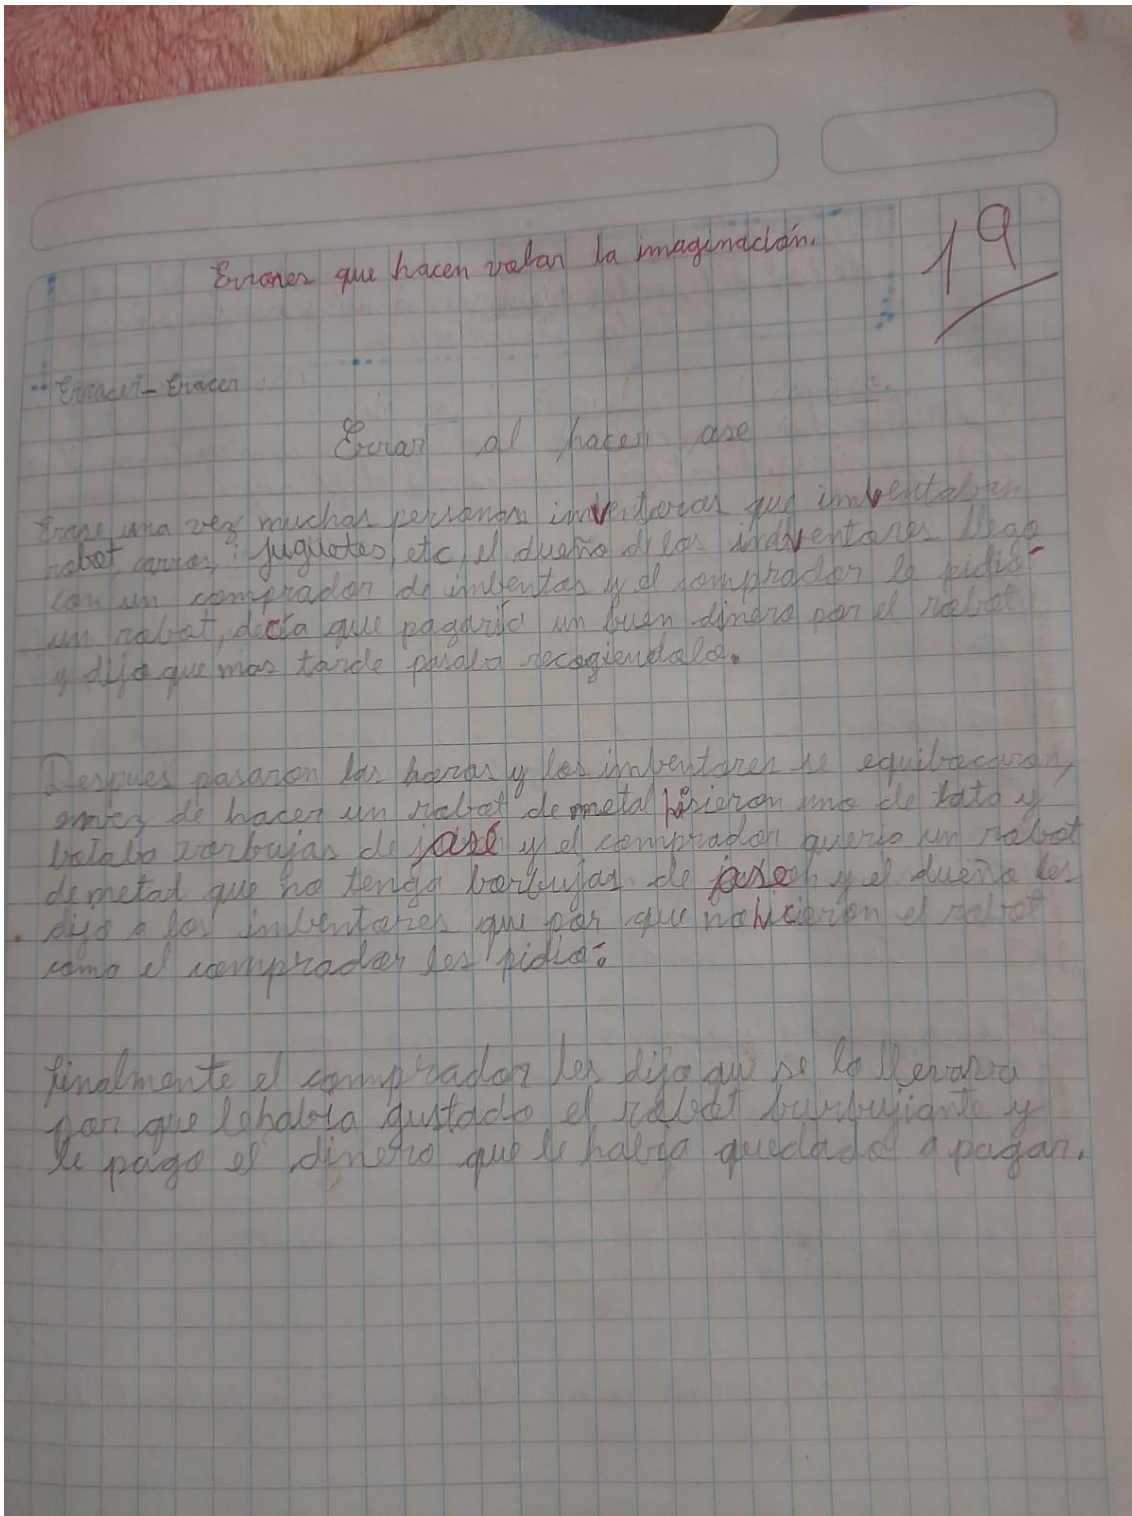 Errores que hacen volar la imaginación.
19
Erracer - Eracer
Errar al hacer ase
Erase una vez muchas personas inventoras que inventaban
robot, carros, juguetes, etc, el dueño de los indventores llego
con un comprador de inventos y el comprador le pidió
un robot, decía que pagaría un buen dinero por el robot
y dijo que mas tarde pasala recogiendolo.
Despues pasaron las horas y los imbentores se equibocaron,
envez de hacer un robot de metal hisieron uno de lata y
botaba vorbujas de jase y el comprador queria un robot
de metal que no tenga borbujas de jase y el dueño les
dijo a los inbentores que por que no hicieron el robot
como el comprador les pidio.
finalmente el comprador les dijo que se lo llevara
por que le habia gustado el robot burbujiante y
le pago el dinero que le habia quedado a pagar.